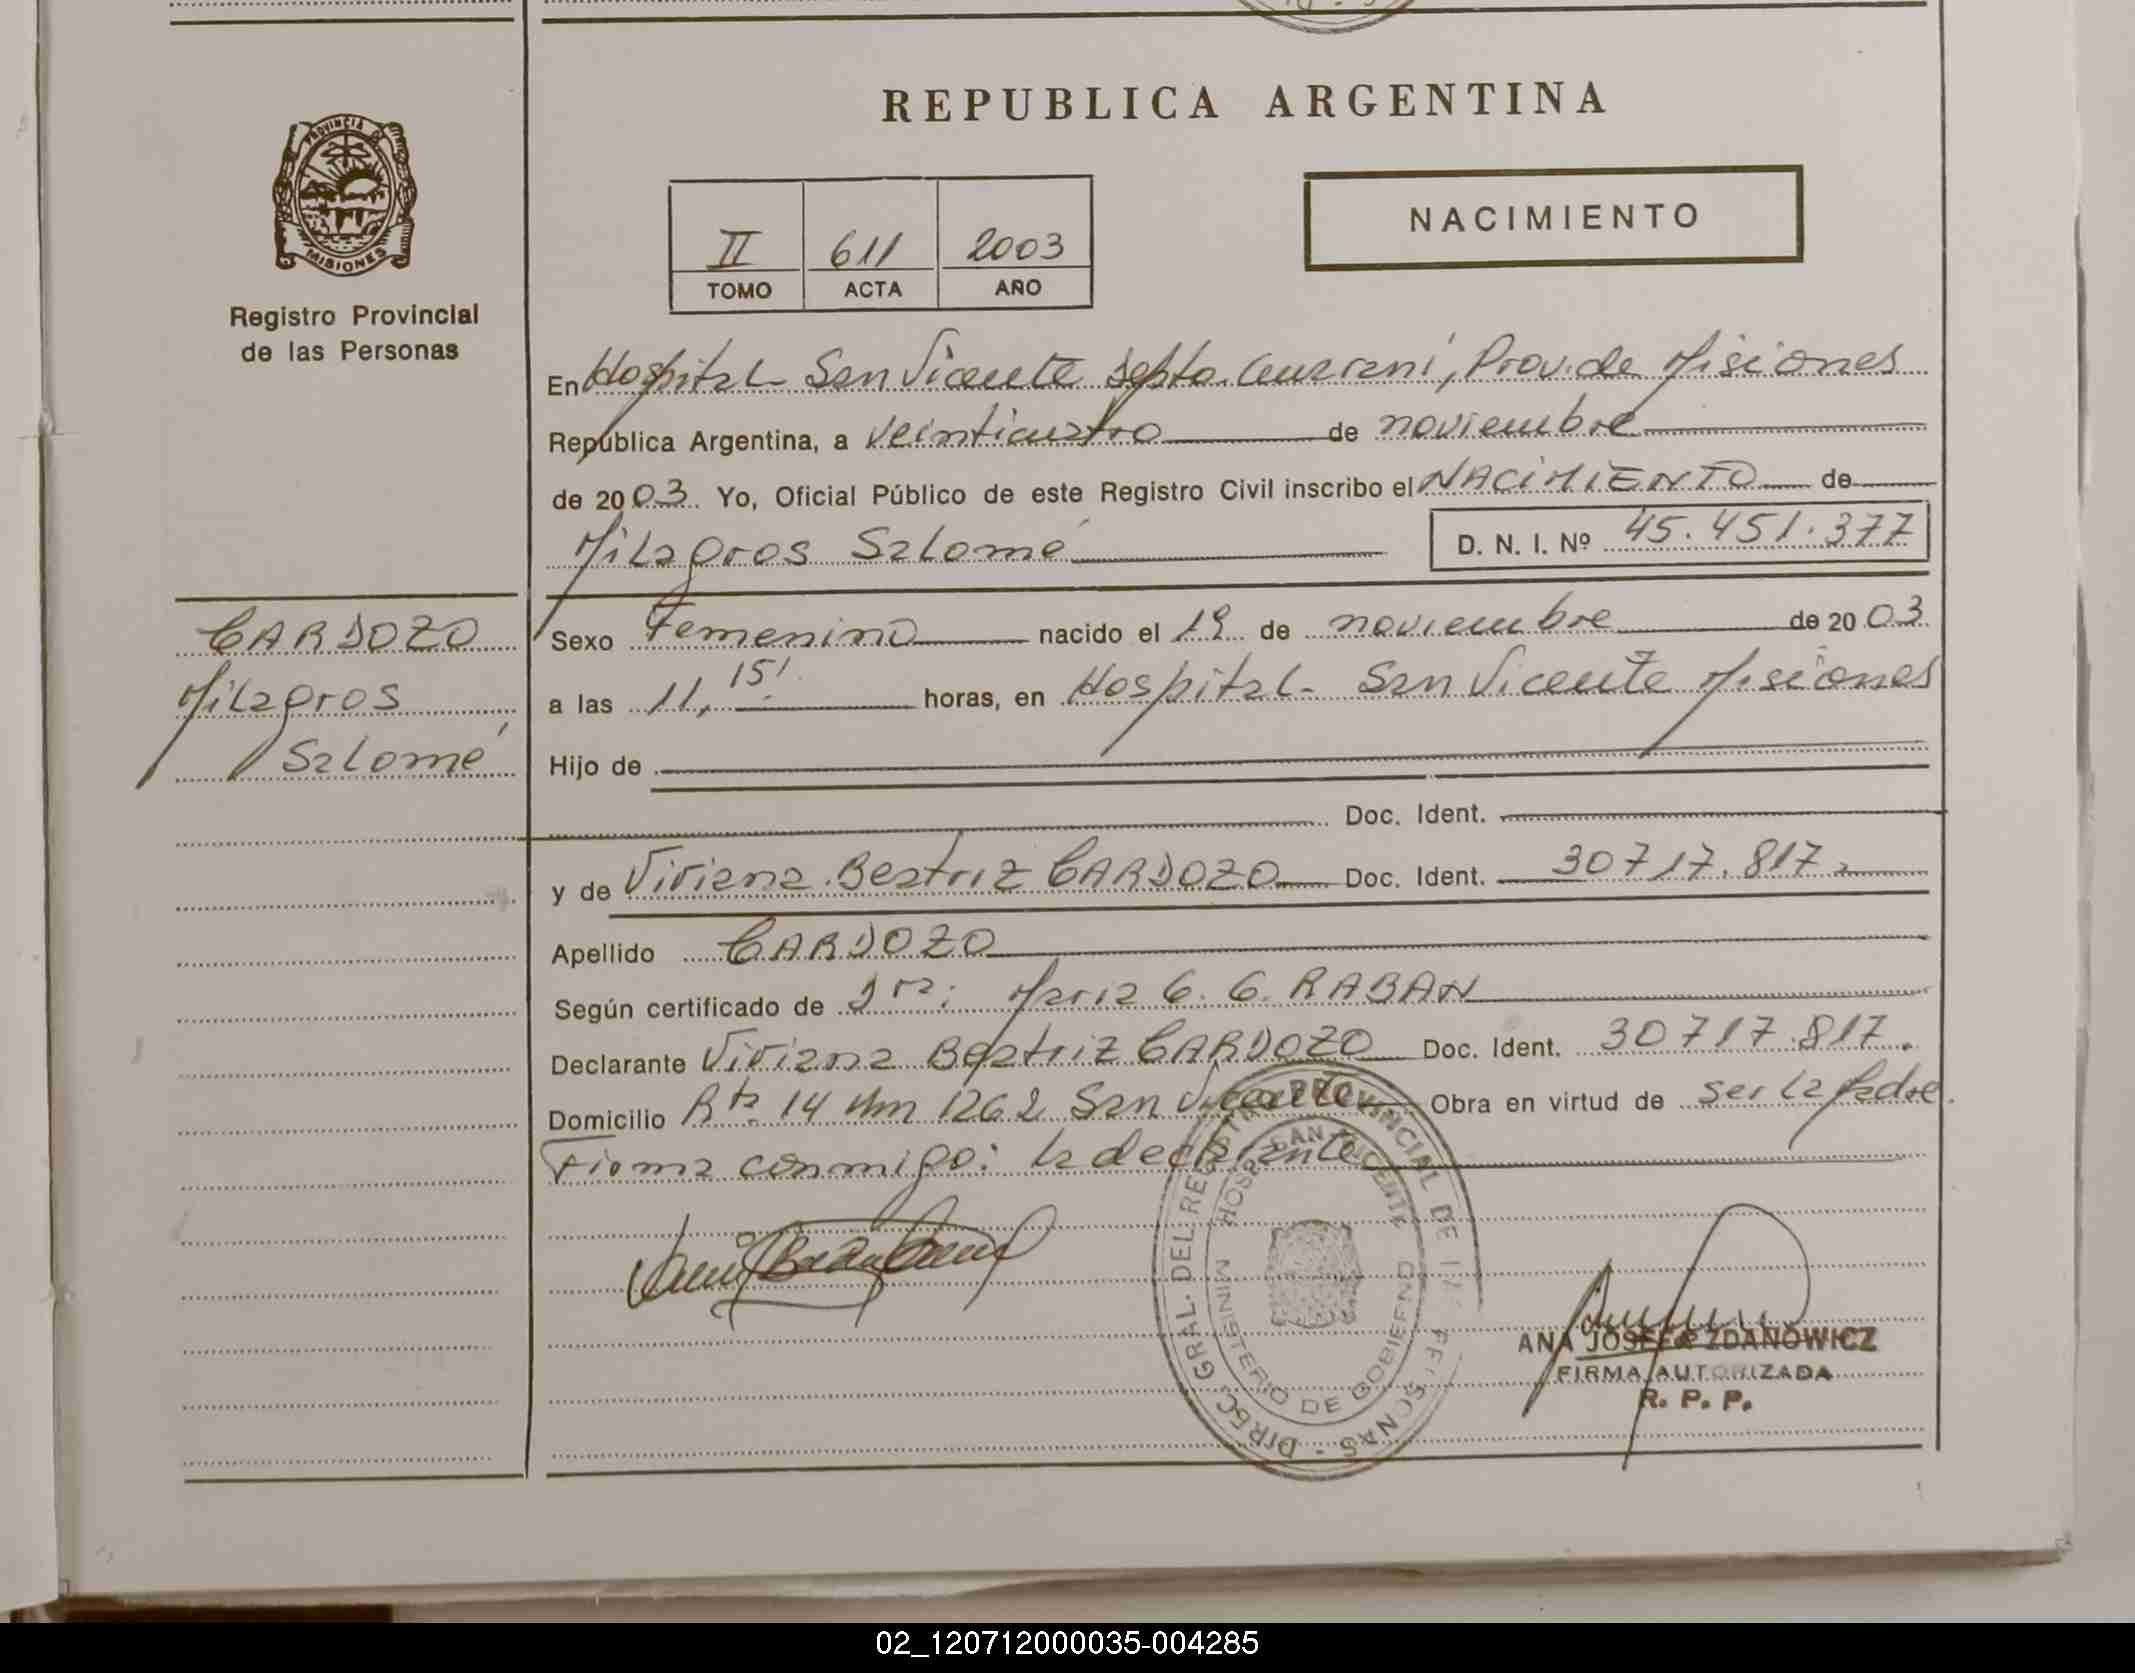 REPUBLICA ARGENTINA
PROVINCIA DE
MISIONES
Registro Provincial
de las Personas
II 611 2003
TOMO ACTA AÑO
NACIMIENTO
En Hospital San Vicente Depto. Guaraní, Prov. de Misiones
República Argentina, a veinticuatro de noviembre
de 2003. Yo, Oficial Público de este Registro Civil inscribo el NACIMIENTO de
Milagros Salomé D. N. I. Nº 45.451.377
CARDOZO
Milagros
Salomé
Sexo Femenino nacido el 19 de noviembre de 2003
a las 11, 15'. horas, en Hospital San Vicente Misiones
Hijo de
Doc. Ident.
y de Viviana Beatriz CARDOZO Doc. Ident. 30717.817
Apellido CARDOZO
Según certificado de Dra: María G. G. RABAN
Declarante Viviana Beatriz CARDOZO Doc. Ident. 30717.817.
Domicilio Rta. 14 km 1262 San Vicente Obra en virtud de ser la
Firma conmigo: la declarante
DIREC. GRAL. DEL REGISTRO PROVINCIAL DE LAS PERSONAS
HOSP. SAN VICENTE
MINISTERIO DE GOBIERNO
ANA JOSEFA ZDANOWICZ
FIRMA AUTORIZADA
R. P. P.
02_120712000035-004285